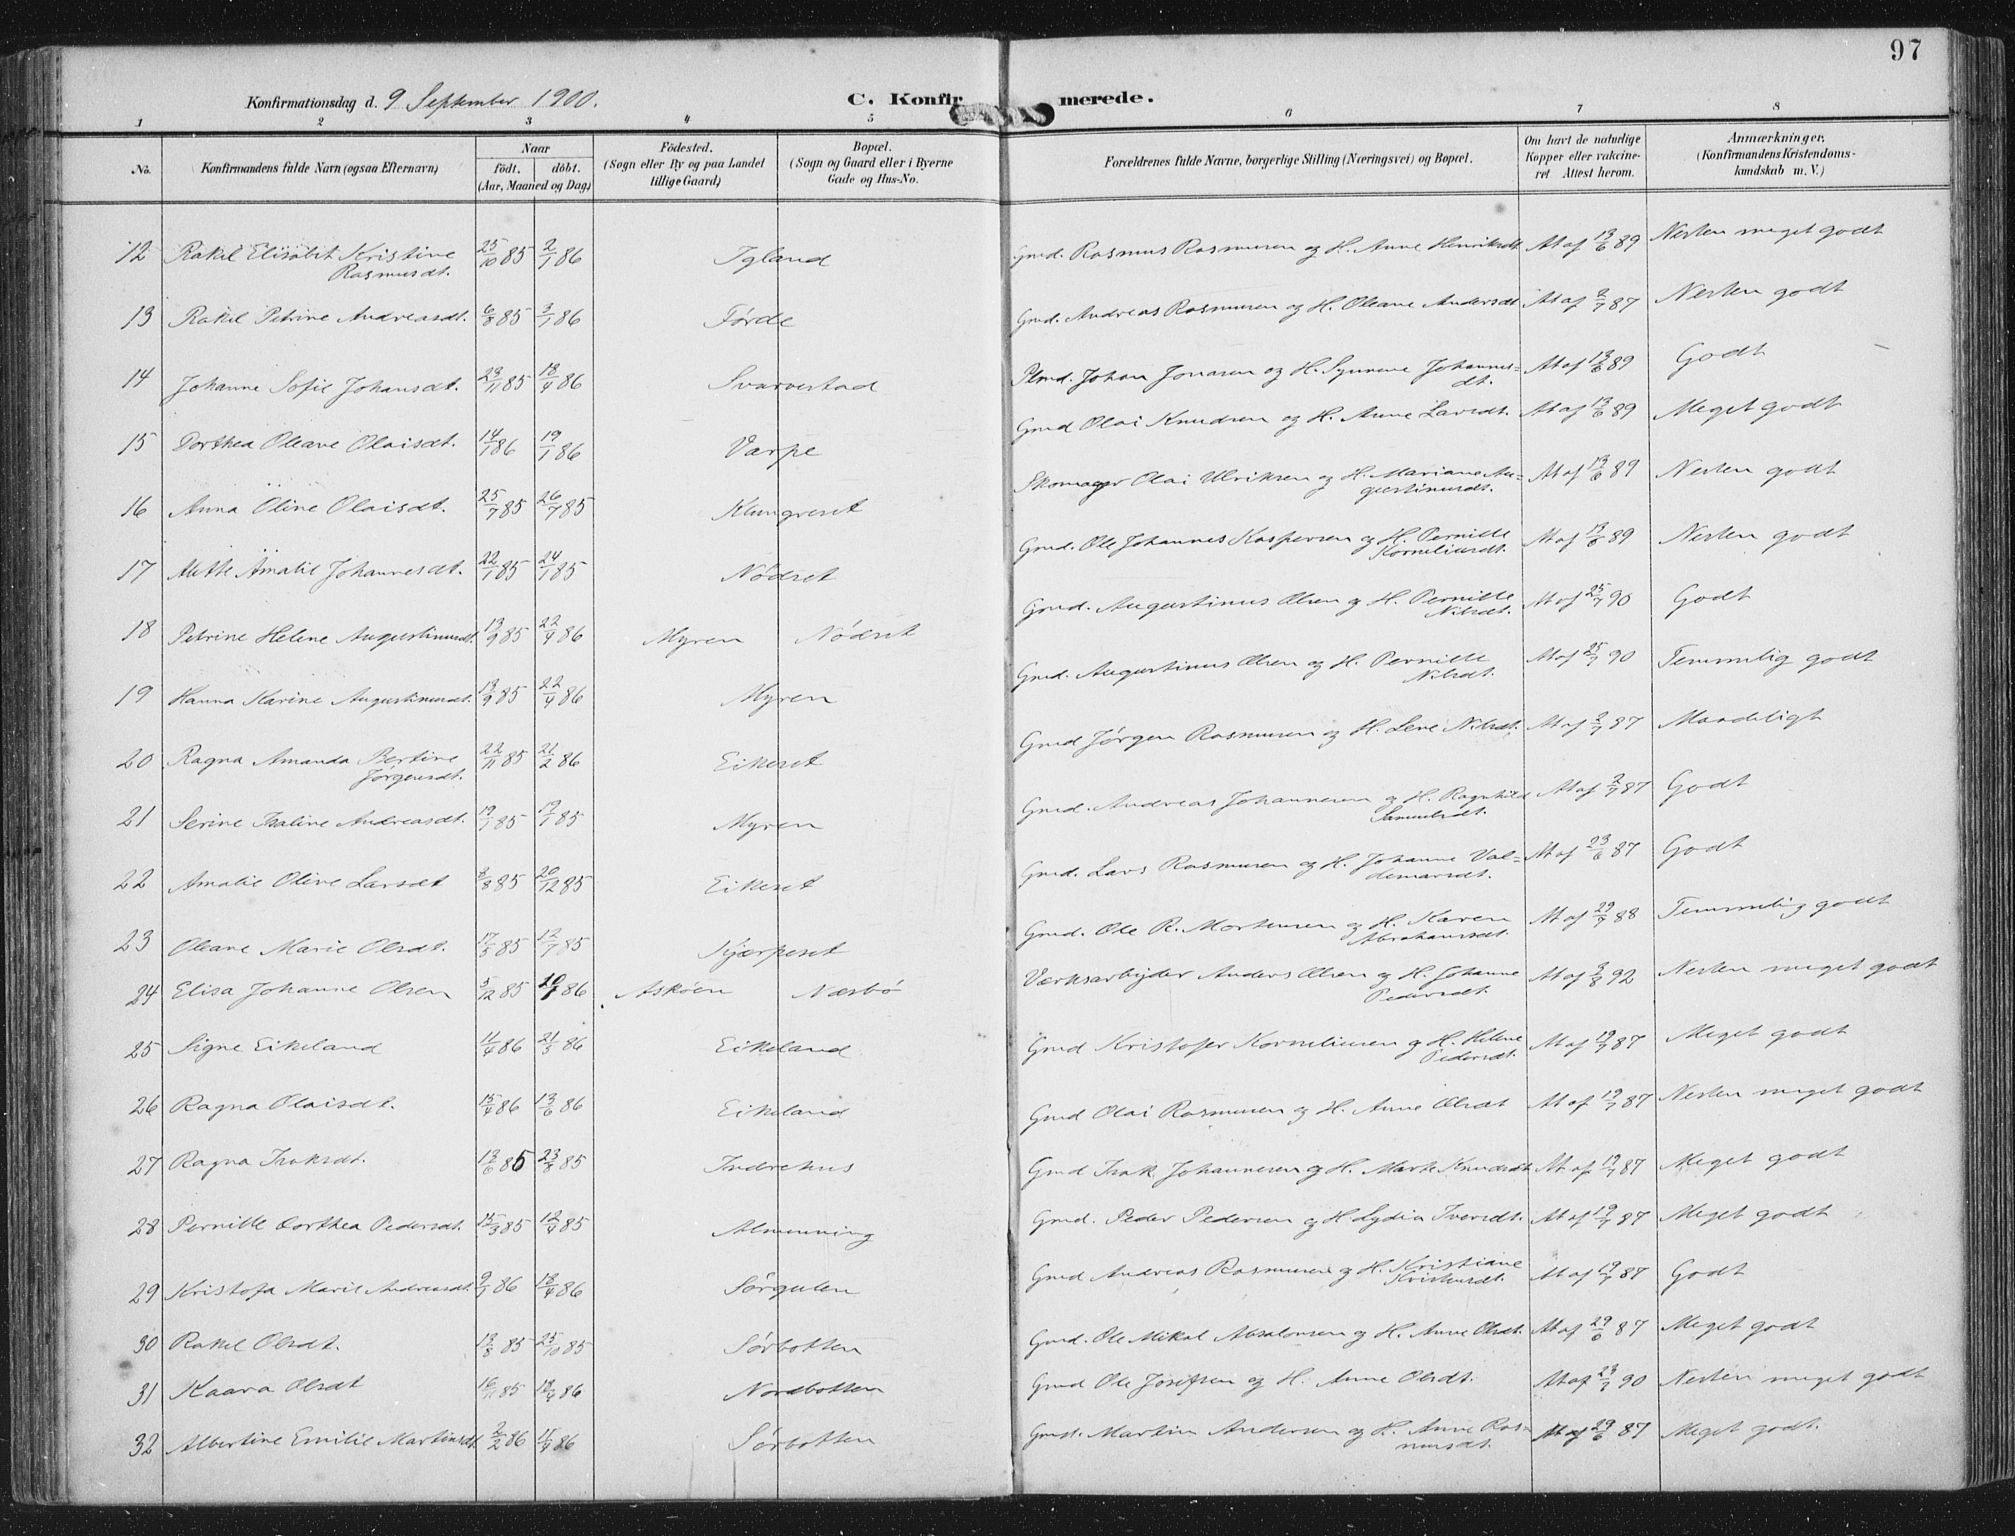 97
Konfirmationsdag d. 9 September 1900.
C. Konfirmerede.
1 2 3 4 5 6 7 8
No.
Konfirmandens fulde Navn (ogsaa Efternavn)
Naar
født. døbt.
(Aar, Maaned og Dag)
Fødested.
(Sogn eller By og paa Landet
tillige Gaard)
Bopæl.
(Sogn og Gaard eller i Byerne
Gade og Hus-No.
Forældrenes fulde Navne, borgerlige Stilling (Næringsvei) og Bopæl.
Om havt de naturlige
Kopper eller vakcine-
ret Attest herom.
Anmærkninger,
(Konfirmandens Kristendoms-
kundskab m. V.)
12 Rakel Elisabet Kristine Rasmusdt. 25/10 85 2/1 86 Igland Gmd. Rasmus Rasmusen og H. Anne Henriksdt At af 13/6 89 Nesten meget godt
13 Rakel Petrine Andreasdt. 6/8 85 3/1 86 Førde Gmd. Andreas Rasmusen og H. Oleane Andersdt At af 2/7 87 Nesten godt
14 Johanne Sofie Johansdt. 23/11 85 18/4 86 Svarvestad Plmd. Johan Jonasen og H. Synneve Johannes=dt. At af 13/6 89 Godt
15 Dorthea Oleane Olaisdt. 14/1 86 19/1 86 Varpe Gmd Olai Knudsen og H. Anne Larsdt. At af 13/6 89 Meget godt
16 Anna Oline Olaisdt. 25/7 85 26/7 85 Klungreset Skomager Olai Ulriksen og H. Mariane Au-gustinusdt. At af 13/6 89 Nesten godt
17 Mette Amalie Johannesdt. 22/1 85 24/1 85 Nödset Gmd. Ole Johannes Kaspersen og H. Pernille Korneliusdt. At af 13/6 89 Nesten godt
18 Petrine Helene Augustinusdt. 13/9 85 22/4 86 Myren Nödset Gmd. Augustinus Olsen og H. Pernille Nilsdt. At af 25/7 90 Godt
19 Hanna Karine Augustinusdt. 13/9 85 22/4 86 Myren Gmd. Augustinus Olsen og H. Pernille Nilsdt. At af 25/7 90 Temmelig godt
20 Ragna Amanda Bertine Jørgensdt. 22/11 85 21/2 86 Eikeset Gmd Jørgen Rasmusen og H. Lene Nilsdt. At af 2/7 87 Maadeligt
21 Serine Isaline Andreasdt. 19/1 85 19/1 85 Myren Gmd. Andreas Johannesen og H. Ragnhild Samuelsdt. At af 2/7 87 Godt
22 Amalie Olive Larsdt 8/8 85 20/12 85 Eikeset Gmd. Lars Rasmusen og H. Johanne Val=demarsdt. At af 23/6 87 Godt
23 Oleane Marie Olsdt. 17/5 85 12/7 85 Kjærpeset Gmd. Ole R. Mortensen og H. Karen Abrahamsdt. At af 29/7 88 Temmelig godt
24 Elisa Johanne Olsen 5/12 85 10/1 86 Askøen Næsbø Værksarbejder Anders Olsen og H. Johanne Pedersdt. At af 9/8 92 Nesten meget godt
25 Signe Eikeland 11/4 86 21/5 86 Eikeland Gmd Kristofer Korneliusen og H. Helene Pedersdt. At af 19/7 87 Meget godt
26 Ragna Olaisdt. 15/4 86 13/6 86 Eikeland Gmd Olai Rasmusen og H. Anne Olsdt At af 19/7 87 Nesten meget godt
27 Ragna Isaksdt. 13/6 85 23/8 85 Indrehus Gmd Isak Johannesen og H. Marte Knudsdt At af 19/7 87 Meget godt
28 Pernille Dorthea Pedersdt. 15/3 85 12/4 85 Almenning Gmd. Peder Pedersen og H Lydia Iversdt. At af 19/7 87 Meget godt
29 Kristofa Marie Andreasdt. 9/1 86 18/4 86 Sørgulen Gmd Andreas Rasmusen og H. Kristiane Kristensdt. At af 19/7 87 Godt
30 Rakel Olsdt. 13/8 85 25/10 85 Sørbotten Gmd. Ole Mikal Absalonsen og H. Anne Olsdt. At af 29/6 87 Meget godt
31 Kaara Olsdt 16/11 85 18/4 86 Nordbotten Gmd Ole Josefsen og H. Anne Olsdt. At af 23/7 90 Nesten meget godt
32 Albertine Emilie Martinsdt. 2/2 86 11/4 86 Sørbotten Gmd. Martin Andersen og H. Anne Ras-musdt. At af 29/6 87 Meget godt.